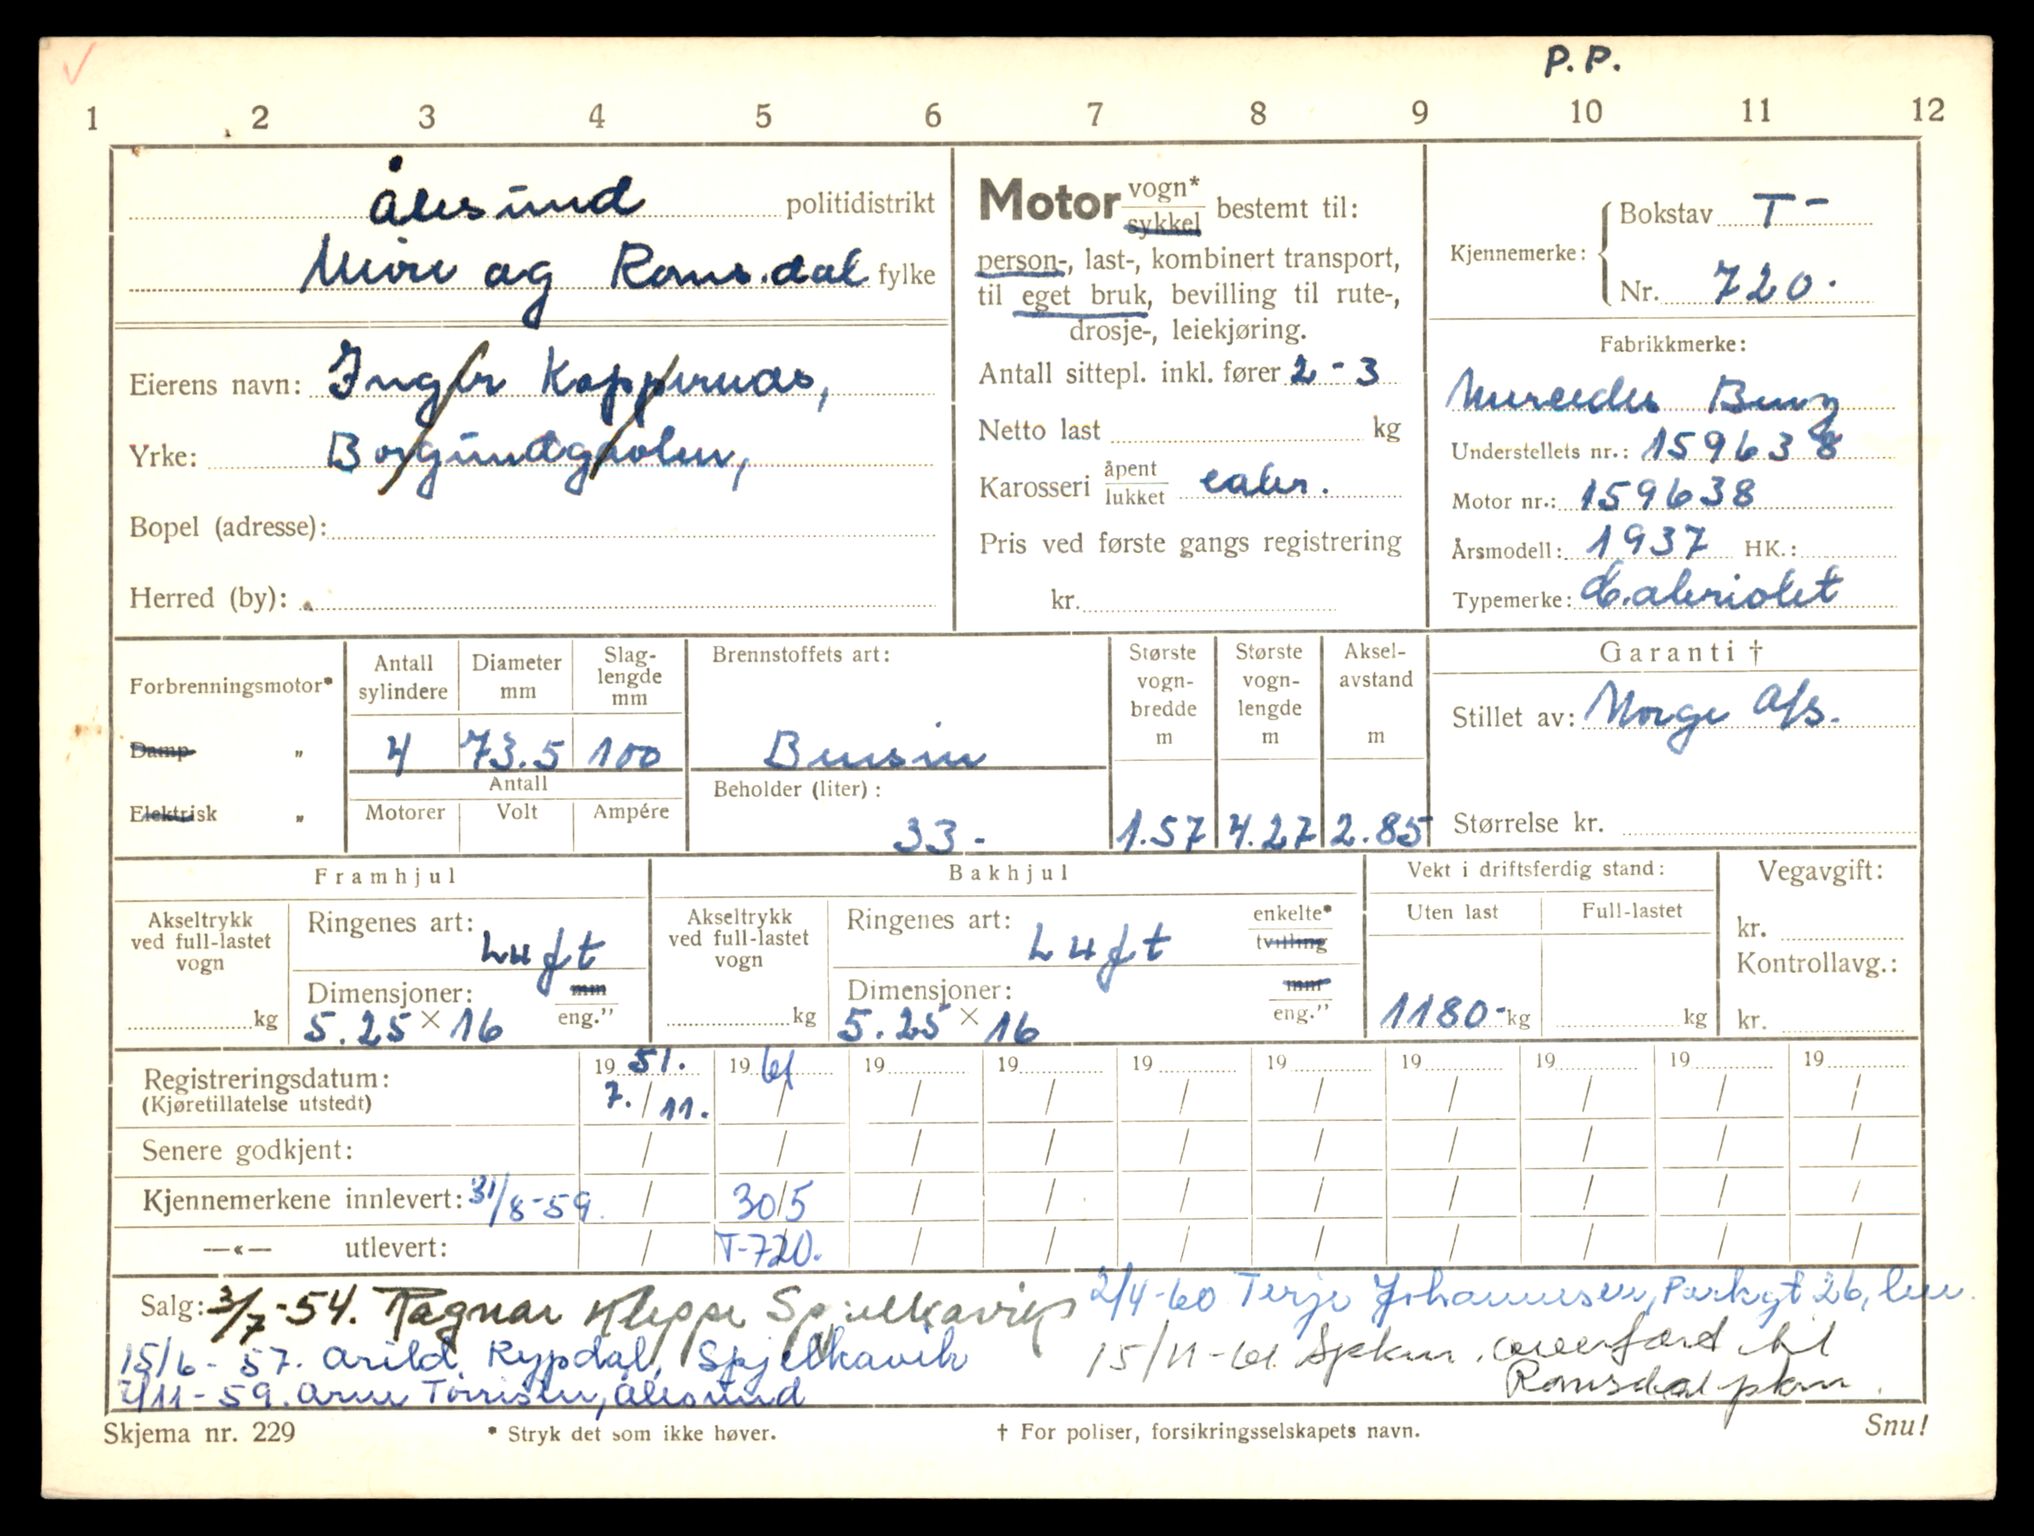 P. P.
1 2 3 4 5 6 7 8 9 10 11 12
Ålesund politidistrikt
Møre og Romsdal fylke
Eierens navn: Inger Koppernæs,
Yrke: Borgundgavlen,
Bopel (adresse):
Herred (by):
Motor vogn* sykkel bestemt til:
person-, last-, kombinert transport,
til eget bruk, bevilling til rute-,
drosje-, leiekjøring.
Antall sittepl. inkl. fører 2-3
Netto last kg
Karosseri åpent lukket cabr.
Pris ved første gangs registrering
kr.
Kjennemerke: Bokstav T-
Nr. 720.
Fabrikkmerke:
Mercedes Benz
Understellets nr.: 159638
Motor nr.: 159638
Årsmodell: 1937 HK.:
Typemerke: Cabriolet
Forbrenningsmotor*
Damp "
Elektrisk "
Antall sylindere Diameter mm Slaglengde mm
4 73.5 100
Antall
Motorer Volt Ampére
Brennstoffets art:
Bensin
Beholder (liter):
33-
Største vognbredde m
1.57
Største vognlengde m
4.27
Akselavstand m
2.85
Garanti †
Stillet av: Norge A/s.
Størrelse kr.
Framhjul
Akseltrykk ved full-lastet vogn
kg
Ringenes art: Luft
Dimensjoner: mm
5.25 × 16 eng."
Bakhjul
Akseltrykk ved full-lastet vogn
kg
Ringenes art: Luft enkelte* tvilling
Dimensjoner: mm
5.25 × 16 eng."
Vekt i driftsferdig stand:
Uten last Full-lastet
1180- kg kg
Vegavgift:
kr.
Kontrollavg.:
kr.
Registreringsdatum: 19 51. 19 61 19 19 19 19 19 19 19 19
(Kjøretillatelse utstedt) 7./11. / / / / / / / / /
Senere godkjent: / / / / / / / / / /
Kjennemerkene innlevert: 31/8-59. / 30/5 / / / / / / / /
—«— utlevert: / T-720. / / / / / / / /
Salg: 3/7-54. Ragnar Kleppe Spjelkavik
15/6-57. Arild Rypdal, Spjelkavik
2/11-59. Arne Tørrisen, Ålesund
2/4-60 Terje Johannesen, Parkgt 26, her.
15/11-61 Spkm. overført til
Romsdal pkm.
Skjema nr. 229
* Stryk det som ikke høver.
† For poliser, forsikringsselskapets navn.
Snu!